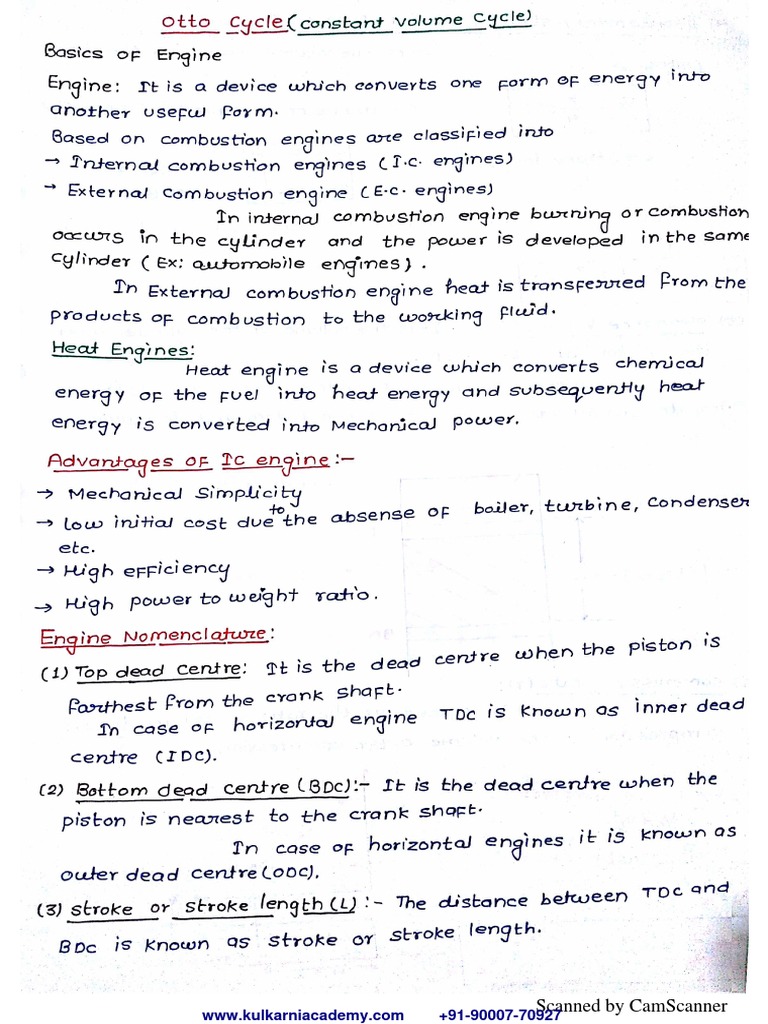 Otto Cycle (constant volume cycle)
Basics of Engine
Engine: It is a device which converts one form of energy into
another useful form.
Based on combustion engines are classified into
→ Internal combustion engines (I.C. engines)
→ External combustion engine (E.C. engines)
In internal combustion engine burning or combustion
occurs in the cylinder and the power is developed in the same
cylinder (Ex: automobile engines).
In External combustion engine heat is transferred from the
products of combustion to the working fluid.
Heat Engines:
Heat engine is a device which converts chemical
energy of the fuel into heat energy and subsequently heat
energy is converted into Mechanical power.
Advantages of IC engine:-
→ Mechanical Simplicity
→ low initial cost due to the absense of boiler, turbine, condenser
etc.
→ High efficiency
→ High power to weight ratio.
Engine Nomenclature:
(1) Top dead centre: It is the dead centre when the piston is
farthest from the crank shaft.
In case of horizontal engine TDC is known as inner dead
centre (IDC).
(2) Bottom dead centre (BDC):- It is the dead centre when the
piston is nearest to the crank shaft.
In case of horizontal engines it is known as
outer dead centre (ODC).
(3) stroke or stroke length (L) :- The distance between TDC and
BDC is known as stroke or stroke length.
Scanned by CamScanner
www.kulkarniacademy.com +91-90007-70927